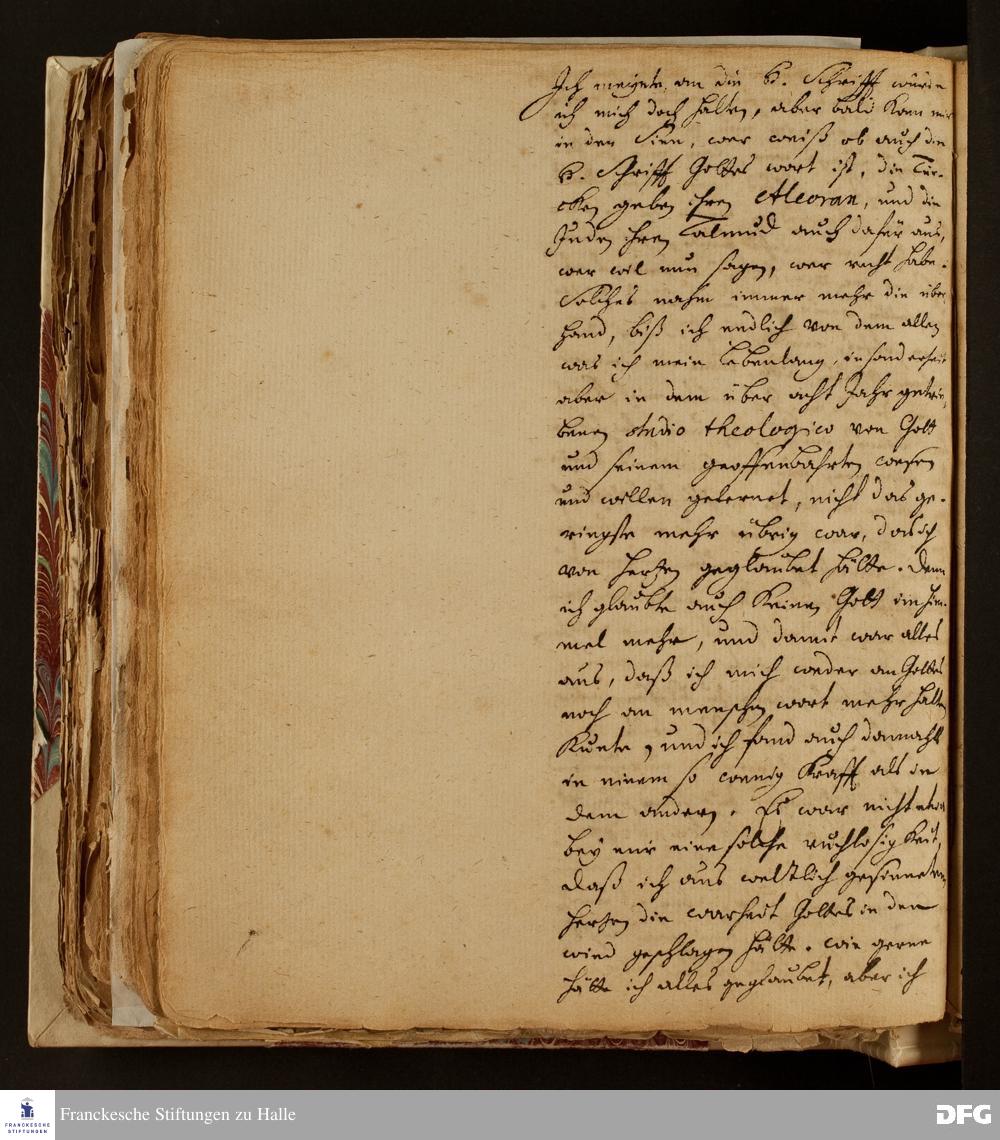 Ich meynte, an die H. Schrifft würde
ich mich doch halten, aber bald kam mir
in den Sinn, wer weiß ob auch die
H. Schrifft Gottes wort ist, die Tür-
cken geben ihren Alcoran, und die
Juden ihren Talmud auch dafür aus,
wer wil nun sagen, wer recht habe.
Solches nahm immer mehr die über
hand, biß ich endlich von dem allen
was ich mein Lebenlang, insonderheit
aber in dem über acht Jahr getrie,
benen studio theologico von Gott
und seinem geoffenbahrten wesen
und willen gelernet, nicht das ge-
ringste mehr übrig war, das ich
von hertzen geglaubet hätte. Denn
ich glaubte auch keinen Gott im him-
mel mehr, und damit war alles
aus, daß ich mich weder an Gottes
noch an menschen wort mehr halten
kunte, und ich fand auch damahls
in einem so wenig Krafft als in
dem andern. Es war nicht etwa
bey mir eine solche ruchlosigkeit,
daß ich aus weltlich gesinnetem
hertzen die warheit Gottes in den
wind geschlagen hätte. wie gerne
hätte ich alles geglaubet, aber ich
Franckesche Stiftungen zu Halle
FRANCKESCHE
STIFTUNGEN
DFG